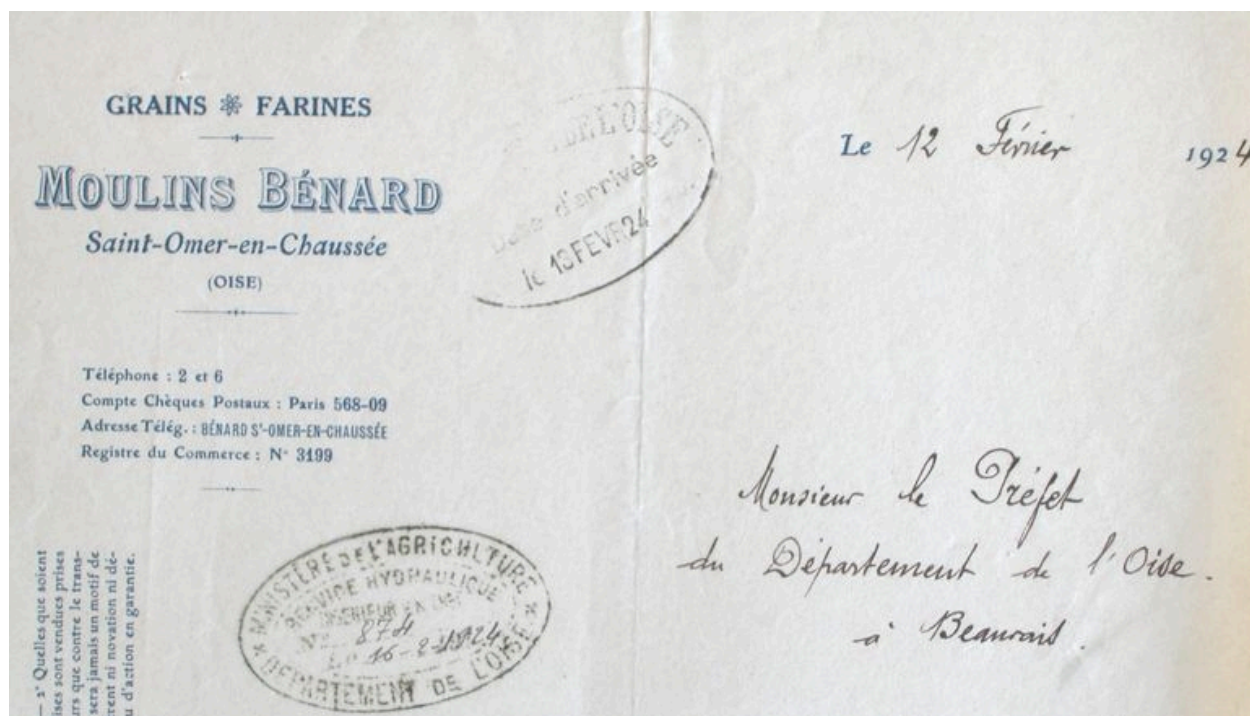 GRAINS ❋ FARINES
MOULINS BÉNARD
Saint-Omer-en-Chaussée
(OISE)
Téléphone : 2 et 6
Compte Chèques Postaux : Paris 568-09
Adresse Télég. : BÉNARD St-OMER-EN-CHAUSSÉE
Registre du Commerce : N° 3199
DE L'OISE
Date d'arrivée
le 13 FEVR 24
Le 12 Février 1924
Monsieur le Préfet
du Département de l'Oise.
à Beauvais.
MINISTÈRE DE L'AGRICULTURE
SERVICE HYDRAULIQUE
INGÉNIEUR EN
874
Le 16-2-1924
DÉPARTEMENT DE L'OISE
— 2° Quelles que soient
ises sont vendues prises
urs que contre le trans-
sera jamais un motif de
rent ni novation ni dé-
u d'action en garantie.